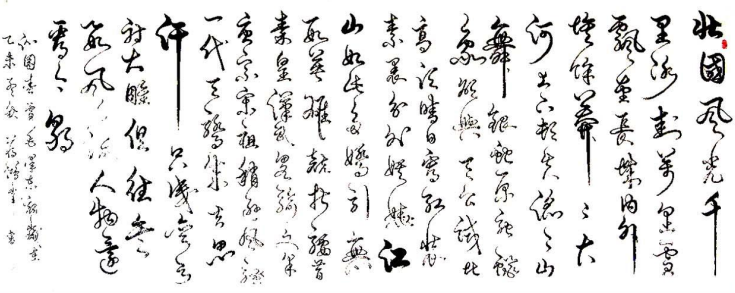 北國風光千
里冰封萬里雪
飄望長城内外
惟餘莽〻大
河上下頓失滔〻山
舞銀蛇原馳蠟
象欲與天公試比
高須晴日看紅裝
素裹分外妖嬈江
山如此多嬌引無
數英雄競折腰惜
秦皇漢武略輸文采
唐宗宋祖稍遜風騷
一代天驕成吉思
汗只識彎弓
射大雕俱往矣
數風流人物還
看今朝
沁園春雪毛澤東
乙未